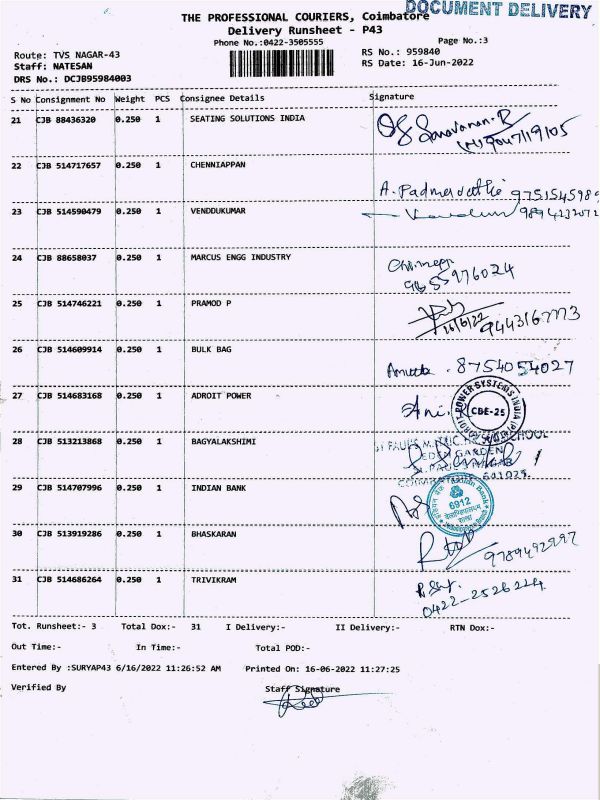 DOCUMENT DELIVERY
THE PROFESSIONAL COURIERS, Coimbatore
Delivery Runsheet - P43
Phone No.:0422-3505555
Page No.:3
Route: TVS NAGAR-43
RS No.: 959840
Staff: NATESAN
RS Date: 16-Jun-2022
DRS No.: DCJB95984003
S No Consignment No Weight PCS Consignee Details Signature
21 CJB 88436320 0.250 1 SEATING SOLUTIONS INDIA
Saravanan.R
9047719105
22 CJB 514717657 0.250 1 CHENNIAPPAN
A. Padmavathi
23 CJB 514590479 0.250 1 VENDDUKUMAR
24 CJB 88658037 0.250 1 MARCUS ENGG INDUSTRY
9655976024
25 CJB 514746221 0.250 1 PRAMOD P
16/6/22
26 CJB 514609914 0.250 1 BULK BAG
8754054027
27 CJB 514683168 0.250 1 ADROIT POWER
ADROIT POWER SYSTEMS INDIA (P) LTD
CBE-25
28 CJB 513213868 0.250 1 BAGYALAKSHIMI
ST PAUL'S M SCHOOL
EDEN GARDEN
ST. PAUL'S NAGAR
COIMBATORE 641025.
29 CJB 514707996 0.250 1 INDIAN BANK
Indian Bank
6912
शाखा
30 CJB 513919286 0.250 1 BHASKARAN
31 CJB 514686264 0.250 1 TRIVIKRAM
0422-2526224
Tot. Runsheet:- 3 Total Dox:- 31 I Delivery:- II Delivery:- RTN Dox:-
Out Time:- In Time:- Total POD:-
Entered By :SURYAP43 6/16/2022 11:26:52 AM Printed On: 16-06-2022 11:27:25
Verified By Staff Signature